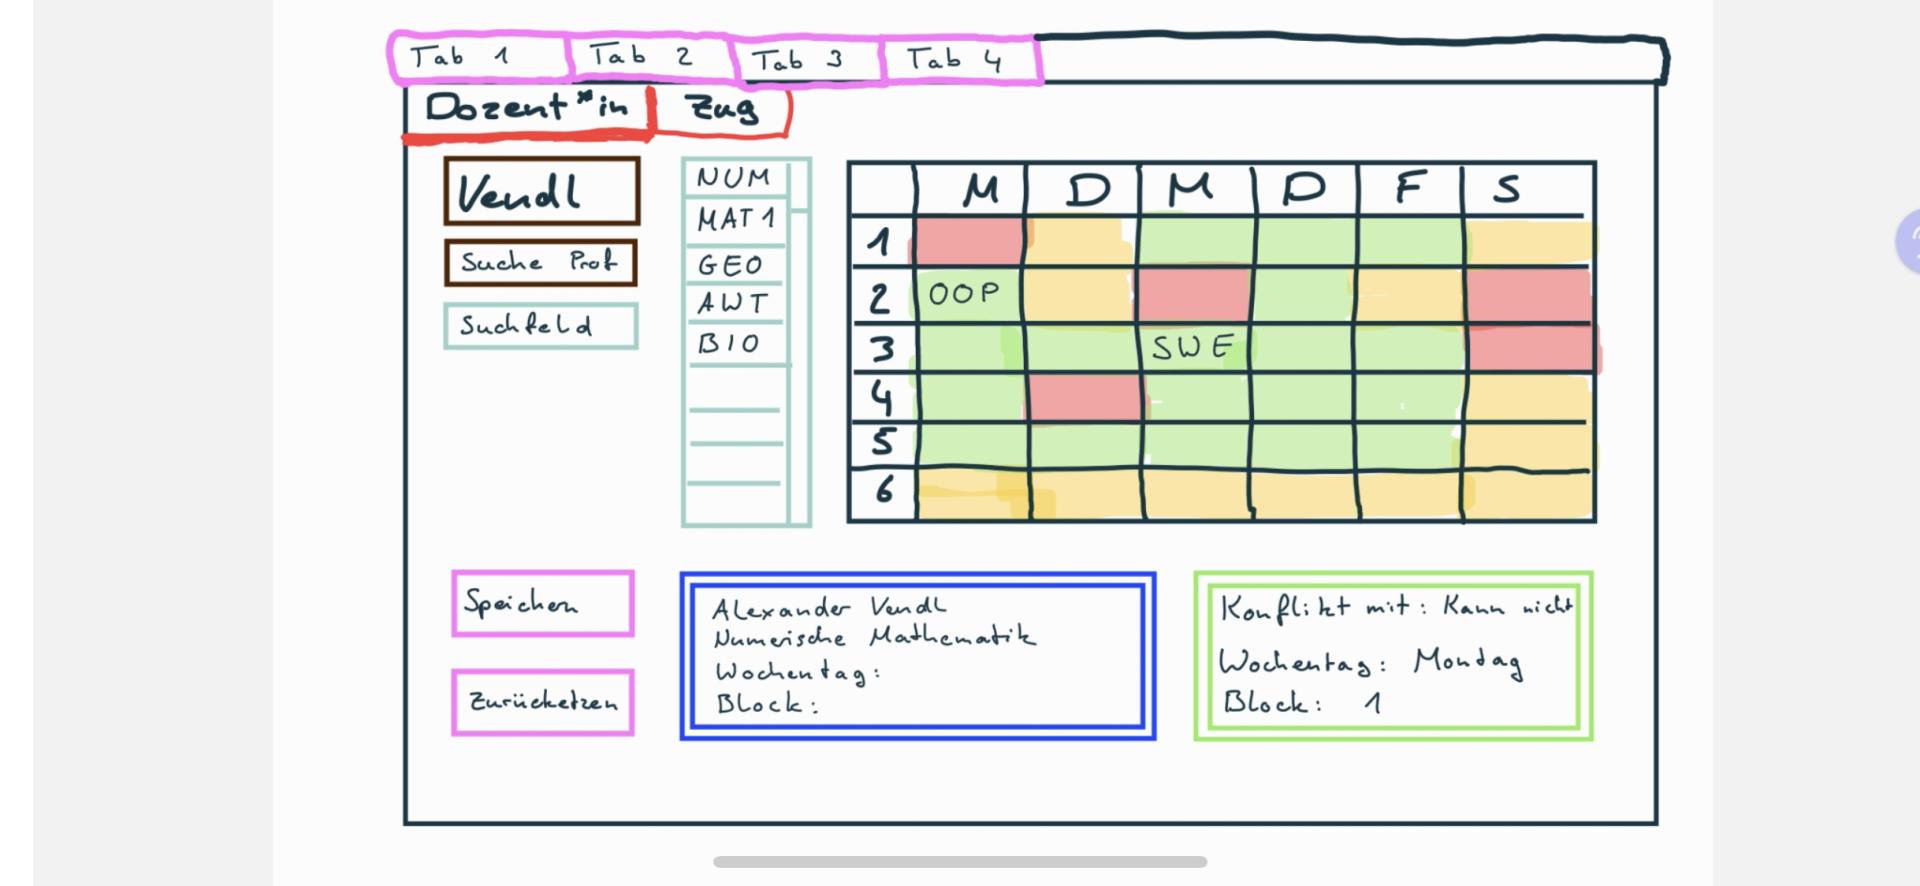 Tab 1 Tab 2 Tab 3 Tab 4
Dozent*in Zug
Vendl
Suche Prof
Suchfeld
NUM
MAT1
GEO
AWT
BIO
M D M D F S
1
2 OOP
3 SWE
4
5
6
Speichern
Zurücketzen
Alexander Vendl
Numerische Mathematik
Wochentag:
Block:
Konflikt mit: Kann nicht
Wochentag: Montag
Block: 1